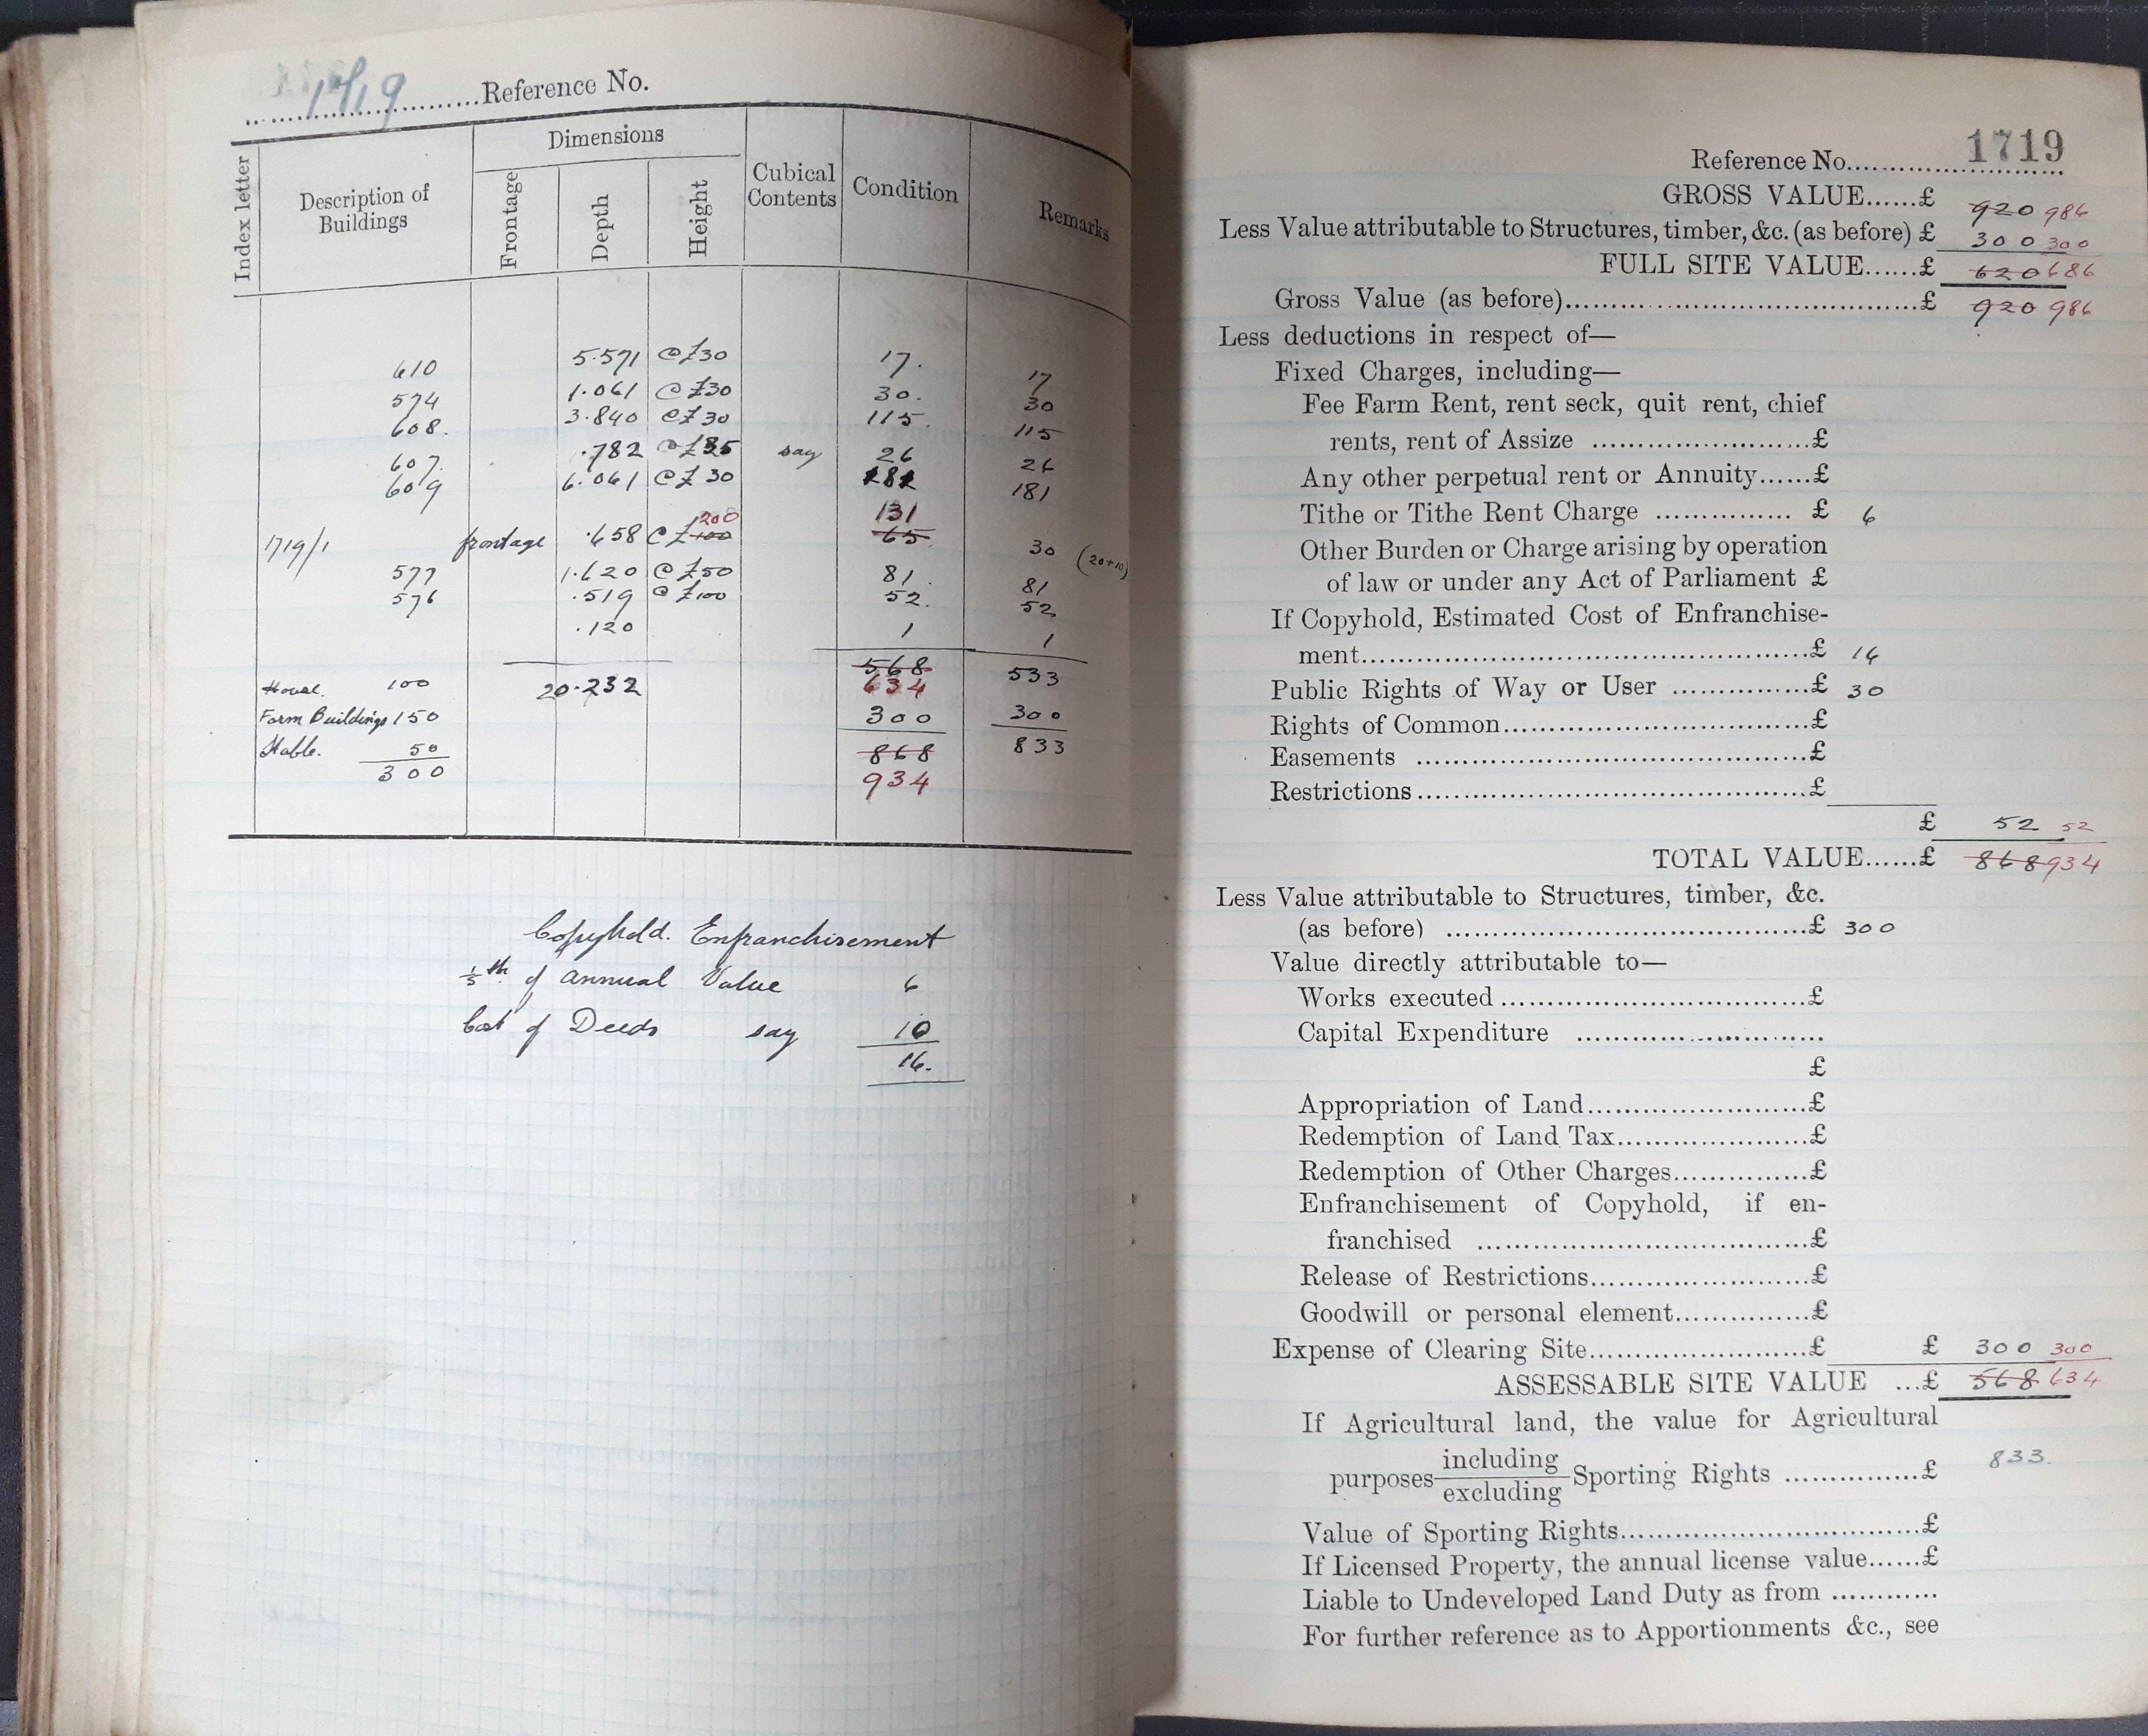 1719 ............Reference No.
Index letter
Description of Buildings
Dimensions
Frontage
Depth
Height
Cubical Contents
Condition
Remarks
610 5.571 @ £30 17. 17
574 1.061 @ £30 30. 30
608. 3.840 @ £30 115. 115
607. .782 @ £35 say 26 26
609 6.061 @ £30 181 181
200 131
1719/1 frontage .658 @ £100 65. 30 (20+10)
577 1.620 @ £50 81. 81
576 .519 @ £100 52. 52
.120 1 1
568
House. 100 20.232 634 533
Farm Buildings 150 300 300
Stable. 50 868 833
300 934
Copyhold. Enfranchisement
1/5th of annual Value 6
Cost of Deeds say 10
16.
Reference No. 1719
GROSS VALUE......£ 920 986
Less Value attributable to Structures, timber, &c. (as before) £ 300 300
FULL SITE VALUE......£ 620 686
Gross Value (as before)......£ 920 986
Less deductions in respect of—
Fixed Charges, including—
Fee Farm Rent, rent seck, quit rent, chief
rents, rent of Assize ......£
Any other perpetual rent or Annuity......£
Tithe or Tithe Rent Charge ...... £ 6
Other Burden or Charge arising by operation
of law or under any Act of Parliament £
If Copyhold, Estimated Cost of Enfranchise-
ment......£ 16
Public Rights of Way or User ......£ 30
Rights of Common......£
Easements ......£
Restrictions......£
£ 52 52
TOTAL VALUE......£ 868 934
Less Value attributable to Structures, timber, &c.
(as before) ......£ 300
Value directly attributable to—
Works executed......£
Capital Expenditure ......
£
Appropriation of Land......£
Redemption of Land Tax......£
Redemption of Other Charges......£
Enfranchisement of Copyhold, if en-
franchised ......£
Release of Restrictions......£
Goodwill or personal element......£
Expense of Clearing Site......£ £ 300 300
ASSESSABLE SITE VALUE ...£ 568 634
If Agricultural land, the value for Agricultural
purposes including/excluding Sporting Rights ......£ 833.
Value of Sporting Rights......£
If Licensed Property, the annual license value......£
Liable to Undeveloped Land Duty as from ............
For further reference as to Apportionments &c., see